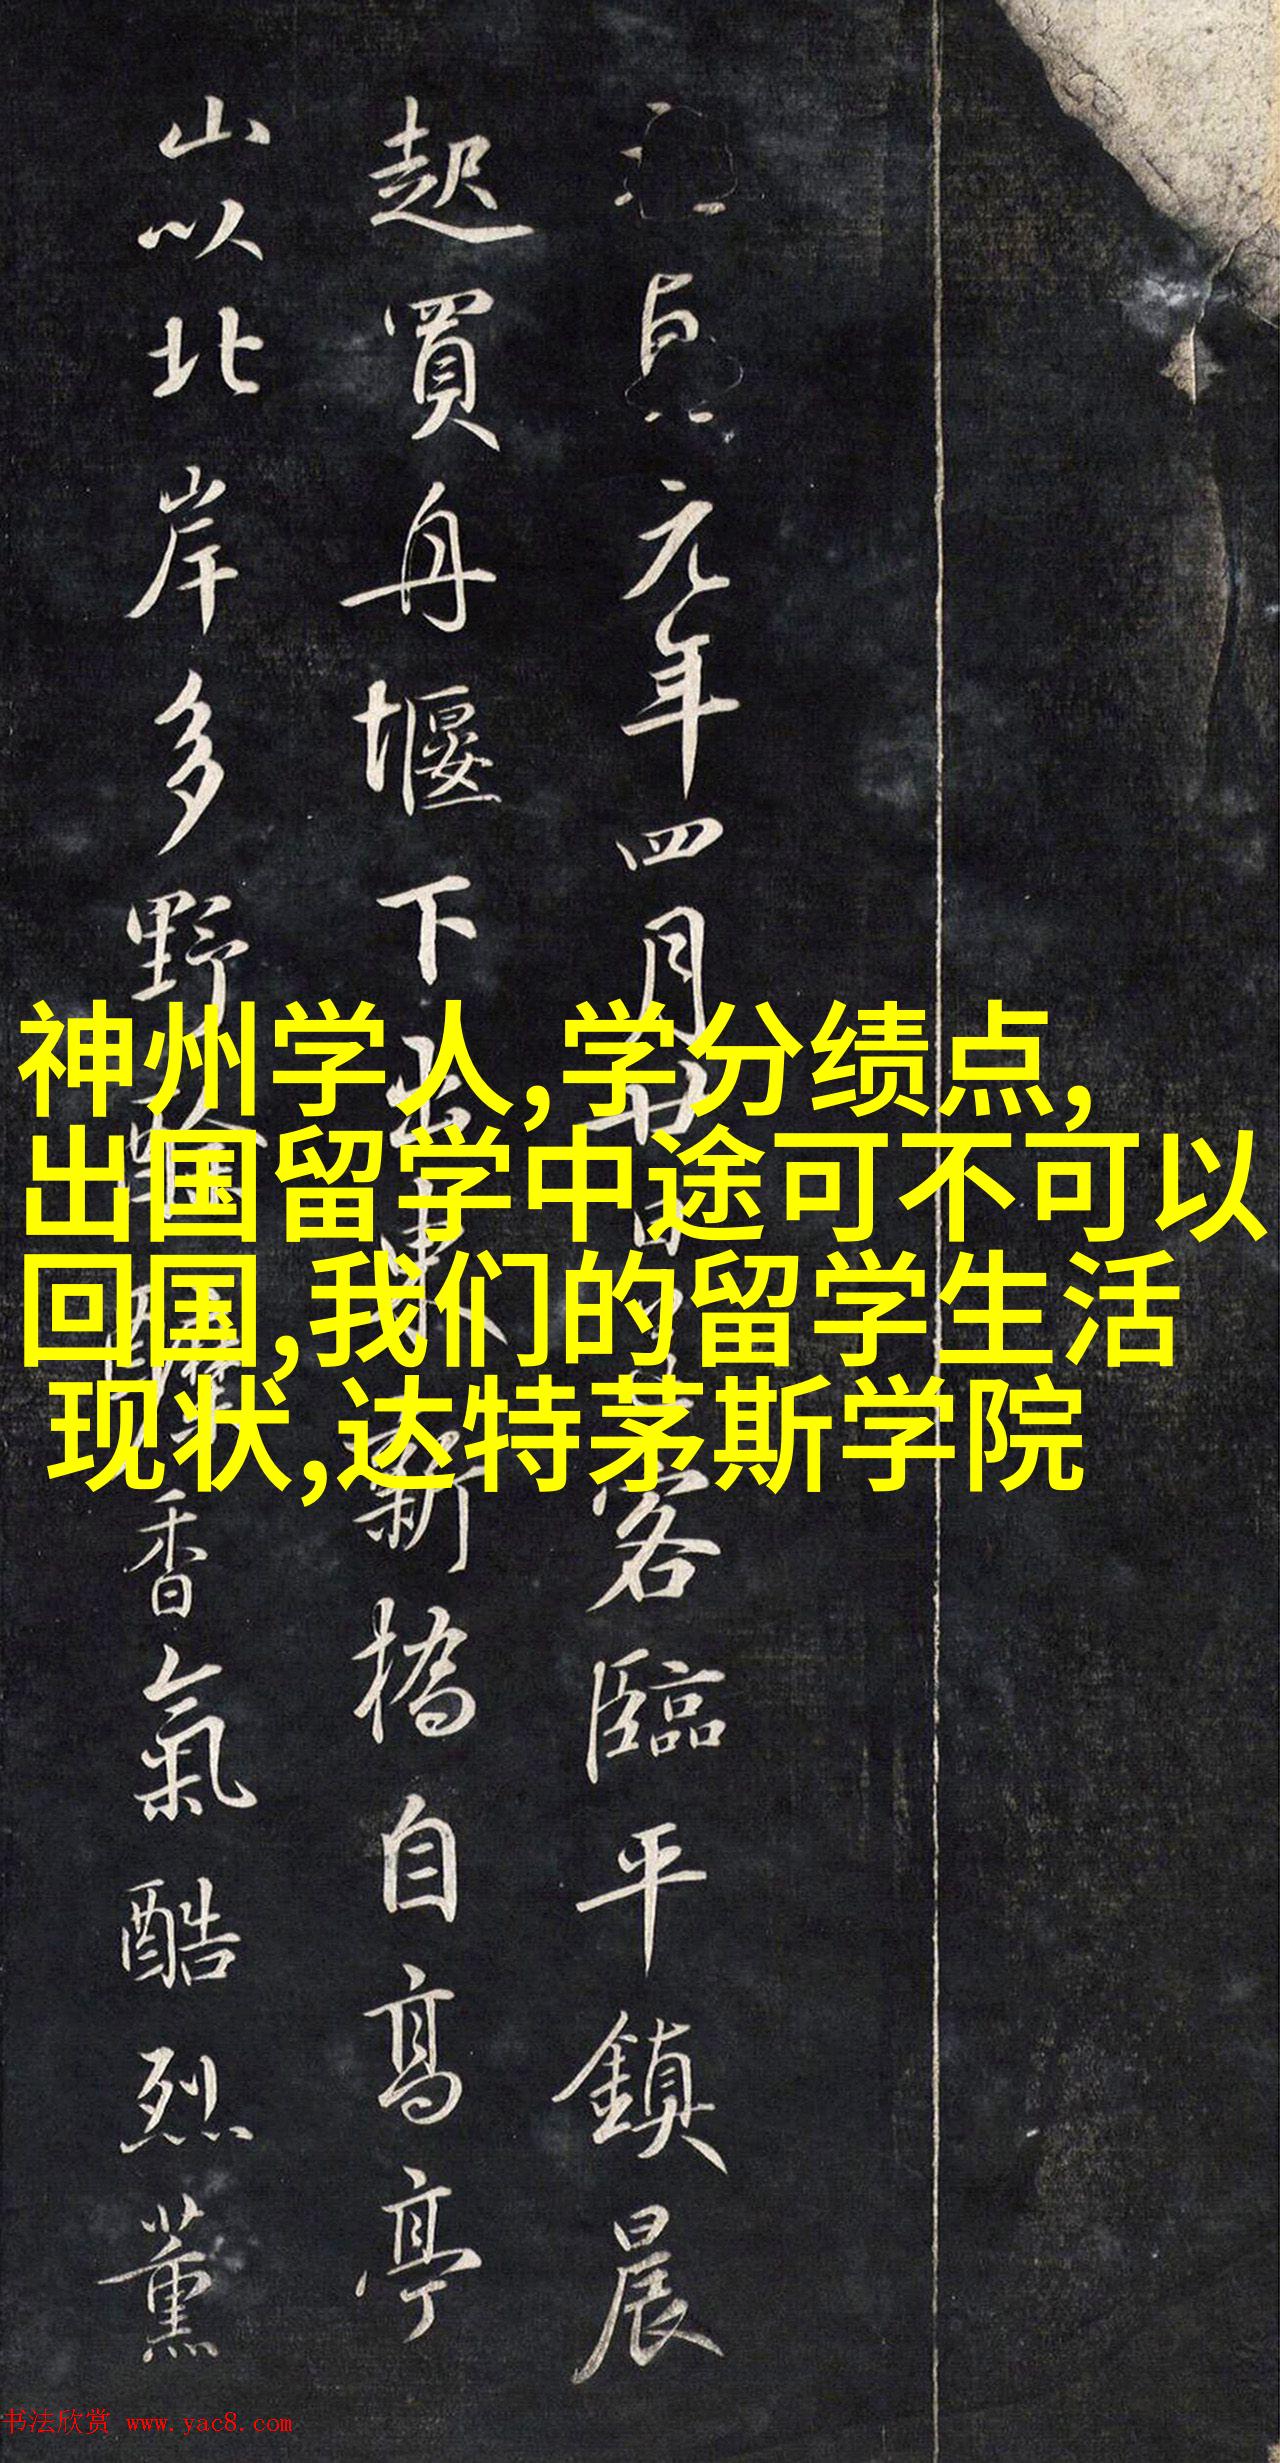 貞元年四月廿日客臨平鎮晨
起買舟堰下出東新橋自高亭
山以北岸多野醾香氣酷烈薰
神州学人,学分绩点,
出国留学中途可不可以
回国,我们的留学生活
现状,达特茅斯学院
书法欣赏 www.yac8.com